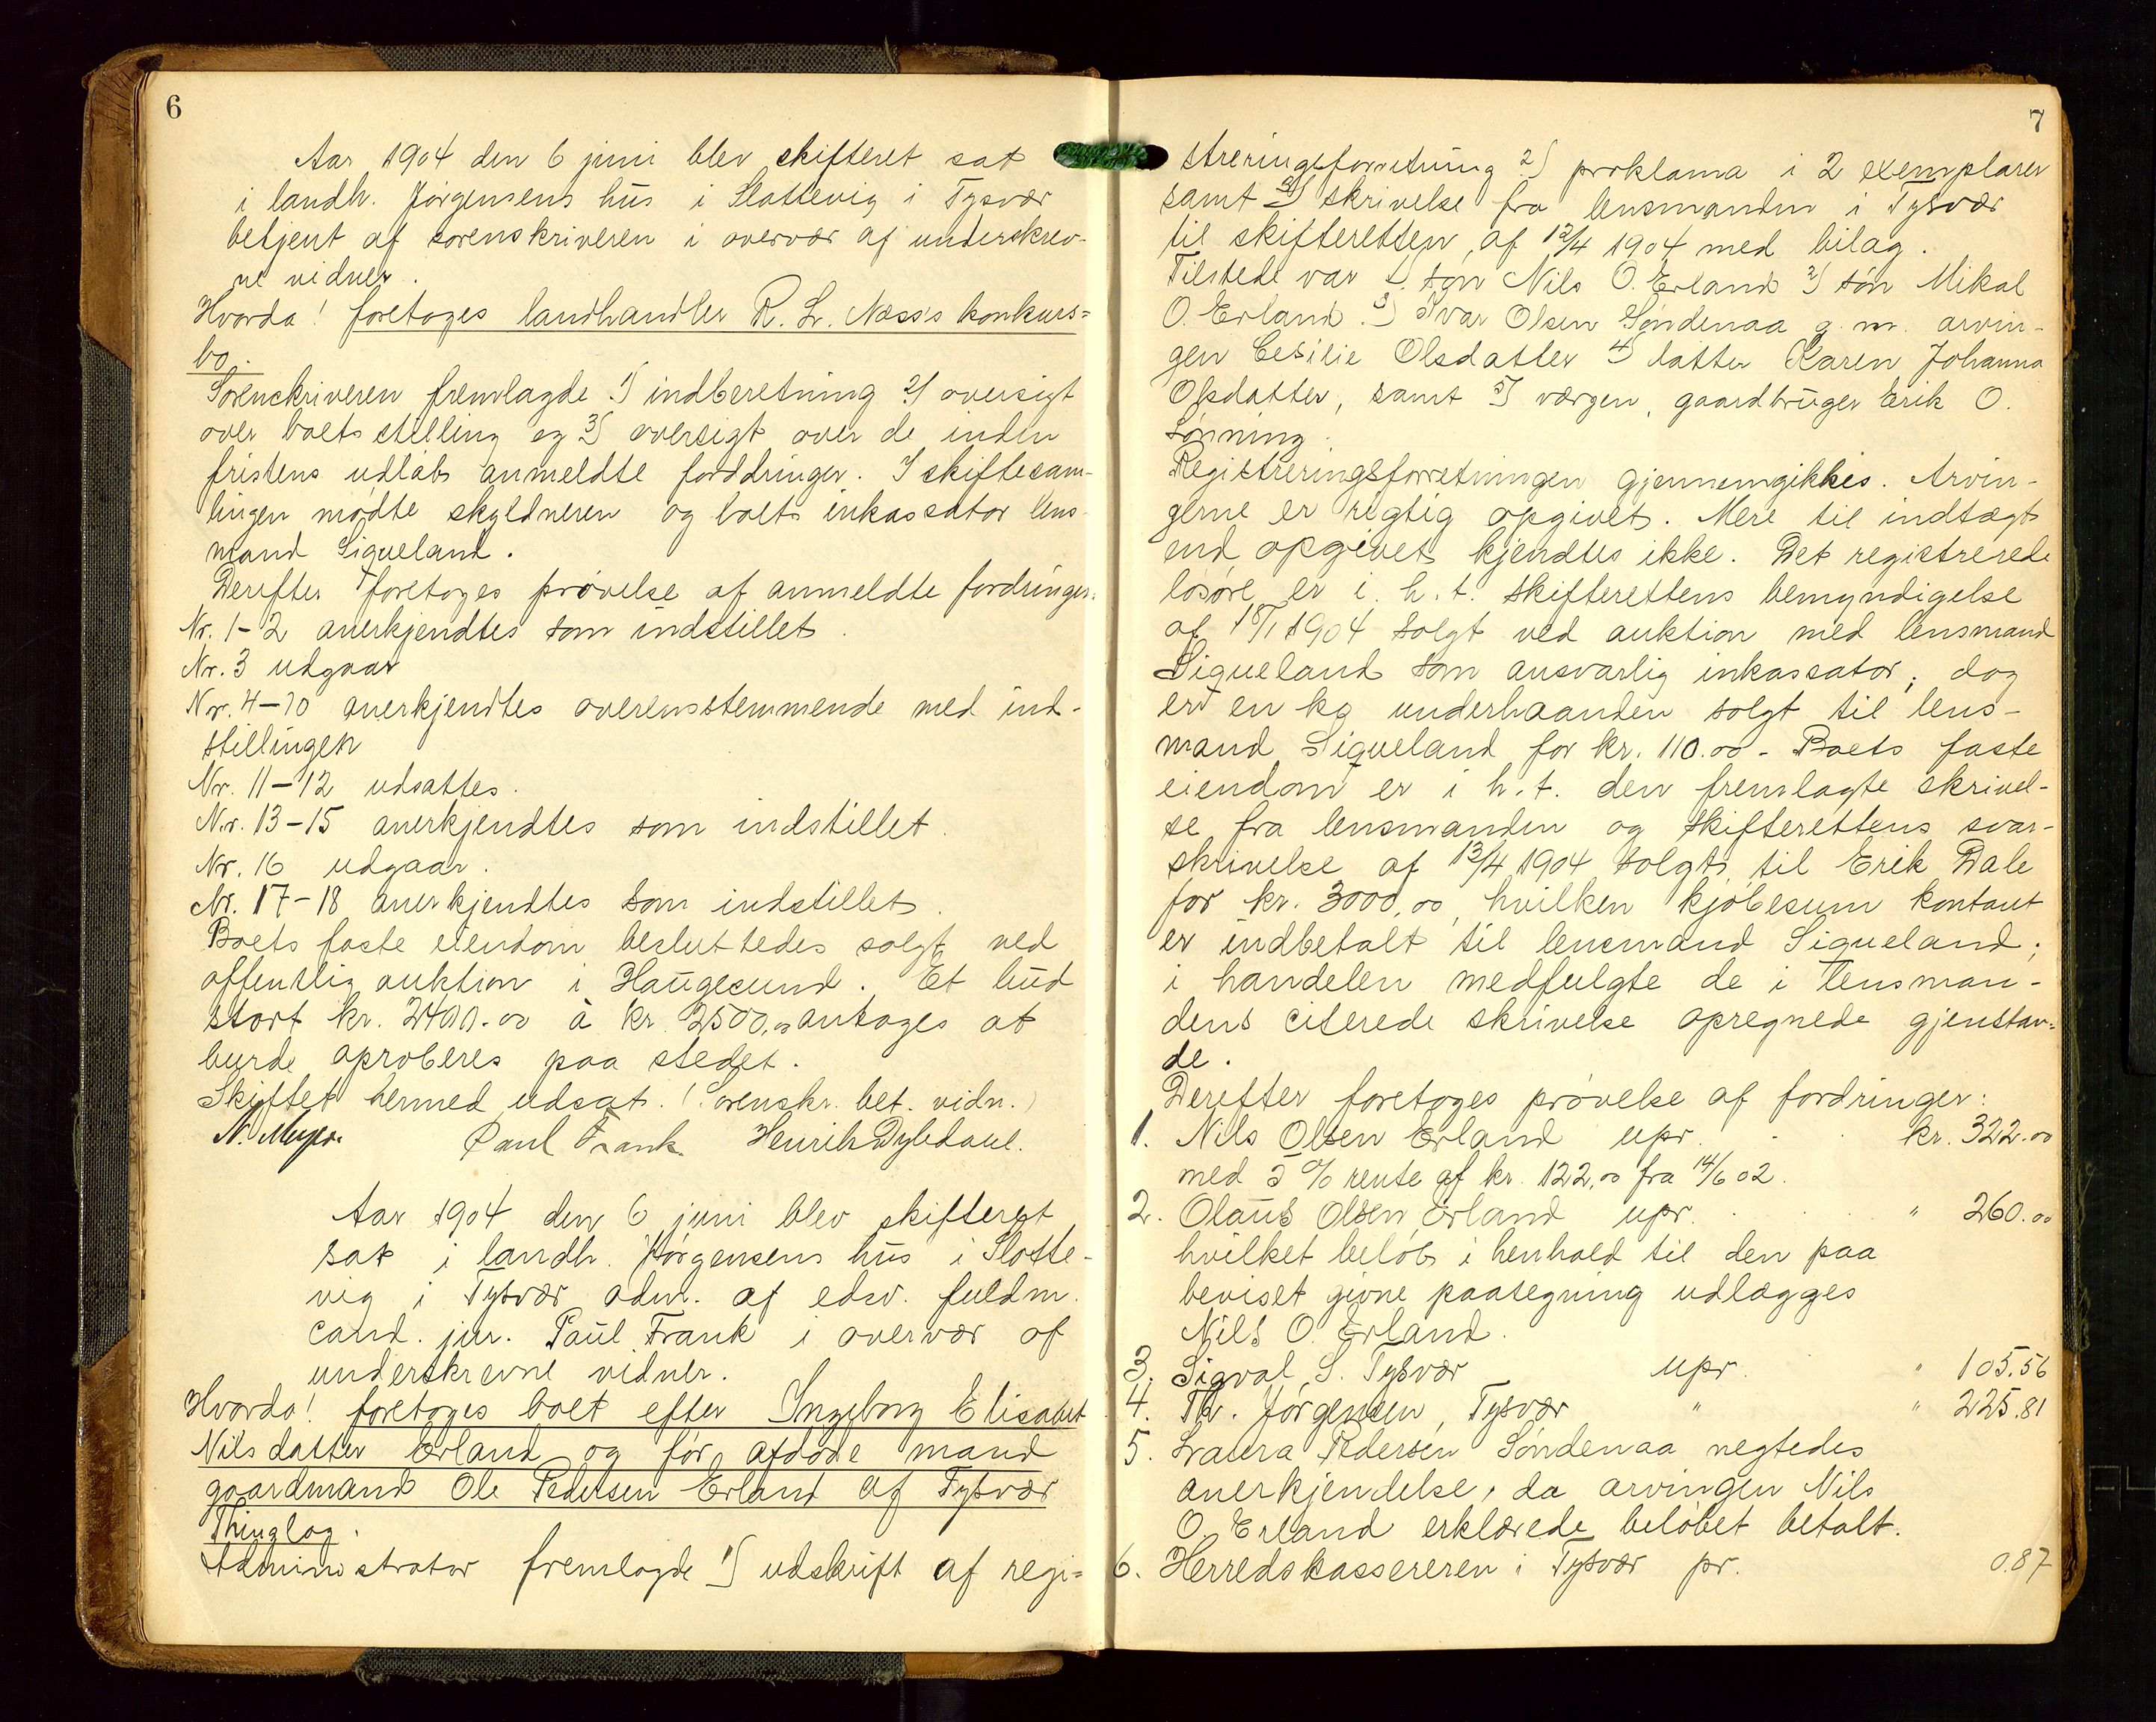 6
Aar 1904 den 6 juni blev skifteret sat
i landh. Jørgensens hus i Slottevig i Tysvær
betjent af sorenskriveren i overvær af underskrev-
ne vidner.
Hvorda! foretoges landhandler R. L. Næss's konkurs=
bo.
Sorenskriveren fremlagde 1) indberetning 2) oversigt
over boets stilling og 3) oversigt over de inden
fristens udløb anmeldte forddringer. I skiftesam-
lingen mødte skyldneren og boets inkassator lens-
mand Siqveland.
Derefter foretoges prøvelse af anmeldte fordringer.
Nr. 1-2 anerkjendtes som indstillet.
Nr. 3 udgaar
Nr. 4-10 anerkjendtes overensstemmende med ind-
stillingen
Nr. 11-12 udsattes.
Nr. 13-15 anerkjendtes som indstillet.
Nr. 16 udgaar.
Nr. 17-18 anerkjendtes som indstillet.
Boets faste eiendom besluttedes solgt ved
offentlig auktion i Haugesund. Et bud
stort kr. 2400.00 à kr. 2500,00 antoges at
burde aproberes paa stedet.
Skiftet hermed udsat. (Sorenskr. bet. vidn.)
N. Meyer. Paul Frank. Henrik Dybdahl.
Aar 1904 den 6 juni blev skifteret
sat i landh. Jørgensens hus i Slotte-
vig i Tysvær adm. af edsv. fuldm.
cand. jur. Paul Frank i overvær af
underskrevne vidner.
Hvorda! foretoges boet efter Ingeborg Elisabet
Nilsdatter Erland og før afdøde mand
gaardmand Ole Pedersen Erland af Tysvær
Thinglag.
Administrator fremlagde 1) udskrift af regi=
7
streringsforretning 2) proklama i 2 exemplarer
samt 3) skrivelse fra lensmanden i Tysvær
til skifteretten af 12/4 1904 med bilag.
Tilstede var 1. søn Nils O. Erland 2) søn Mikal
O. Erland. 3) Ivar Olsen Søndenaa g. m. arvin-
gen Cesilie Olsdatter 4) datter Karen Johanna
Olsdatter, samt 5) værgen, gaardbruger Erik O.
Lønning.
Registreringsforretningen gjennemgikkes. Arvin-
gerne er rigtig opgivet. Mere til indtægt
end opgivet kjendtes ikke. Det registrerede
løsøre er i. h. t. skifterettens bemyndigelse
af 1904 solgt ved auktion med lensmand
Siqveland som ansvarlig inkassator; dog
er en ko underhaanden solgt til lens-
mand Siqveland for kr. 110.00 - Boets faste
eiendom er i h. t. den fremlagte skrivel-
se fra lensmanden og skifterettens svar-
skrivelse af 13/4 1904 solgt til Erik Dale
for kr. 3000,00, hvilken kjøbesum kontant
er indbetalt til lensmand Siqveland;
i handelen medfulgte de i lensman-
dens citerede skrivelse opregnede gjenstan=
de.
Derefter foretoges prøvelse af fordringer:
1. Nils Olsen Erland upr. kr. 322.00
med 5 % rente af kr. 122,00 fra 14/6 02.
2. Olaus Olsen Erland upr. " 260.00
hvilket beløb i henhold til den paa
beviset givne paategning udlægges
Nils O. Erland.
3. Sigval S. Tysvær upr. " 105.56
4. Th. Jørgensen, Tysvær " " 225.81
5. Laura Pedersen Søndenaa negtedes
anerkjendelse, da arvingen Nils
O. Erland erklærede beløbet betalt.
6. Herredskassereren i Tysvær pr. 0.87